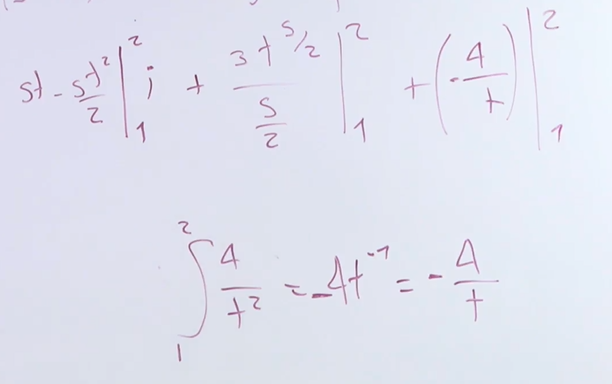 5t - 5t²/2 |₁² i + 3t^5/2 / 5/2 |₁² + (-4/t) |₁²
∫₁² 4/t² = -4t⁻¹ = -4/t